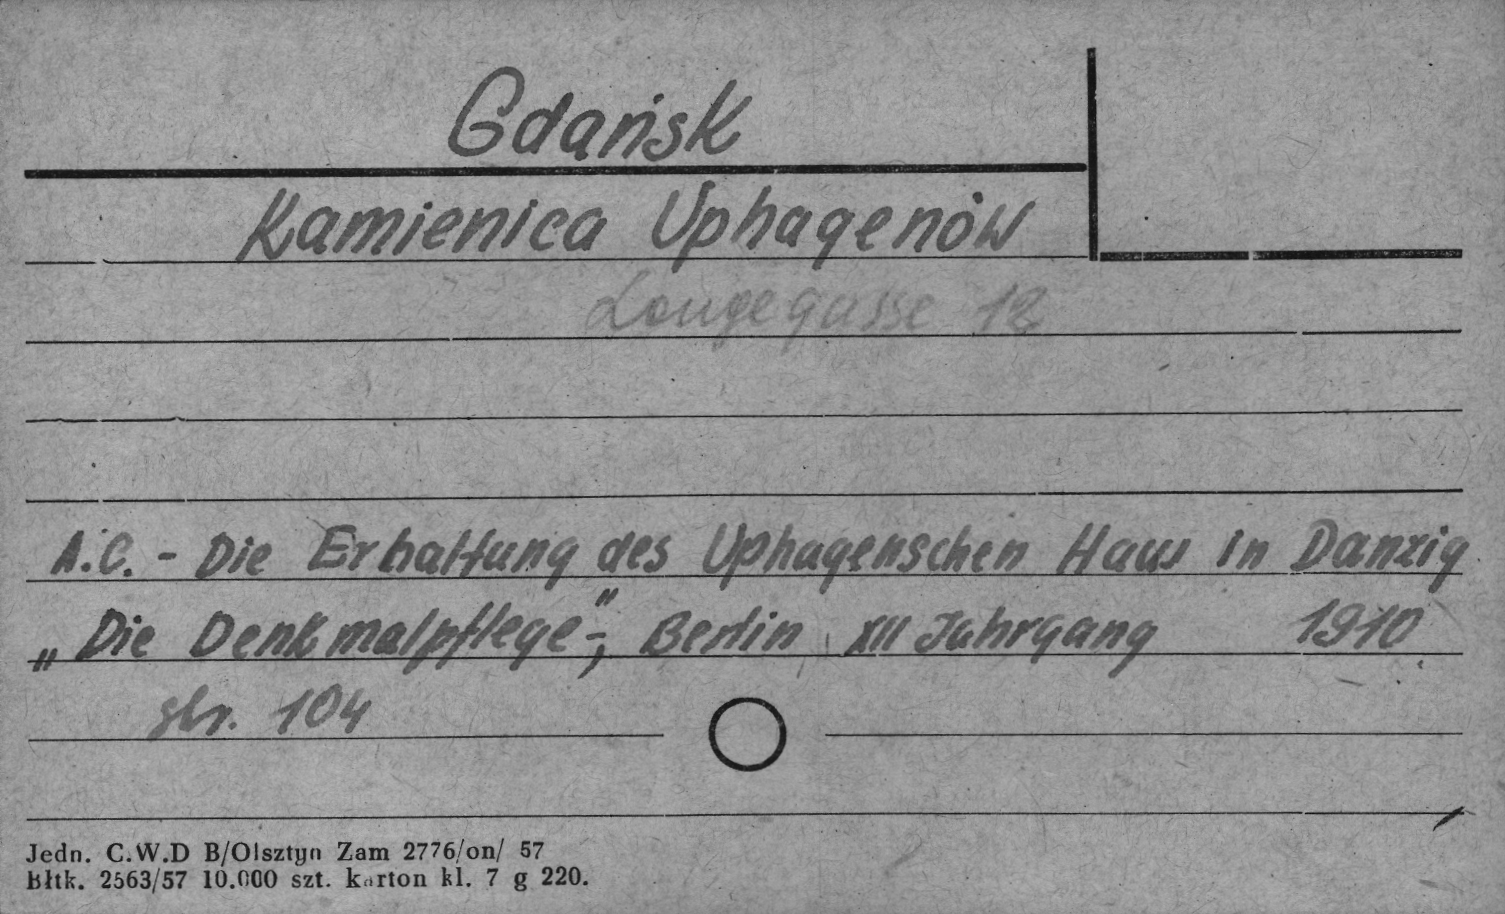 Gdańsk
Kamienica Uphagenów
Langegasse 12
A.C. - Die Erhaltung des Uphagenschen Haus in Danzig
„Die Denkmalpflege”-, Berlin XII Jahrgang 1910
str. 104
Jedn. C.W.D B/Olsztyn Zam 2776/on/ 57
Błtk. 2563/57 10.000 szt. karton kl. 7 g 220.